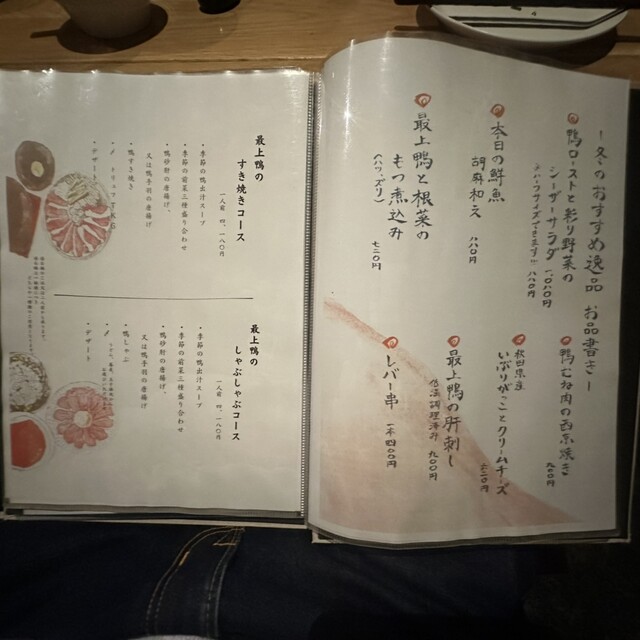 〜冬のおすすめ逸品 お品書き〜
鴨ローストと彩り野菜の
シーザーサラダ
一〇八〇円
八一〇円
本日の鮮魚
胡麻和え
八八〇円
最上鴨と根菜の
もつ煮込み
(ハツ、ズリ)
七二〇円
鴨むね肉の西京焼き
九八〇円
秋田県産
いぶりがっことクリームチーズ
最上鴨の肝刺し
低温調理済み
九〇〇円
レバー串
一本 四〇〇円
最上鴨の
すき焼きコース
一人前 四、一八〇円
・季節の鴨出汁スープ
・季節の前菜三種盛り合わせ
・鴨砂肝の唐揚げ、
又は鴨手羽の唐揚げ
・鴨すき焼き
・デザート
最上鴨の
しゃぶしゃぶコース
一人前 四、一八〇円
・季節の鴨出汁スープ
・季節の前菜三種盛り合わせ
・鴨砂肝の唐揚げ、
又は鴨手羽の唐揚げ
・鴨しゃぶ
・デザート